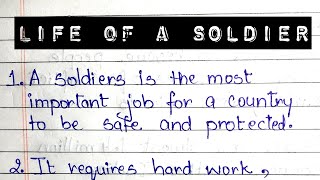 LIFE OF A SOLDIER
1. A soldiers is the most
important job for a country
to be safe and protected.
2. It requires hard work,